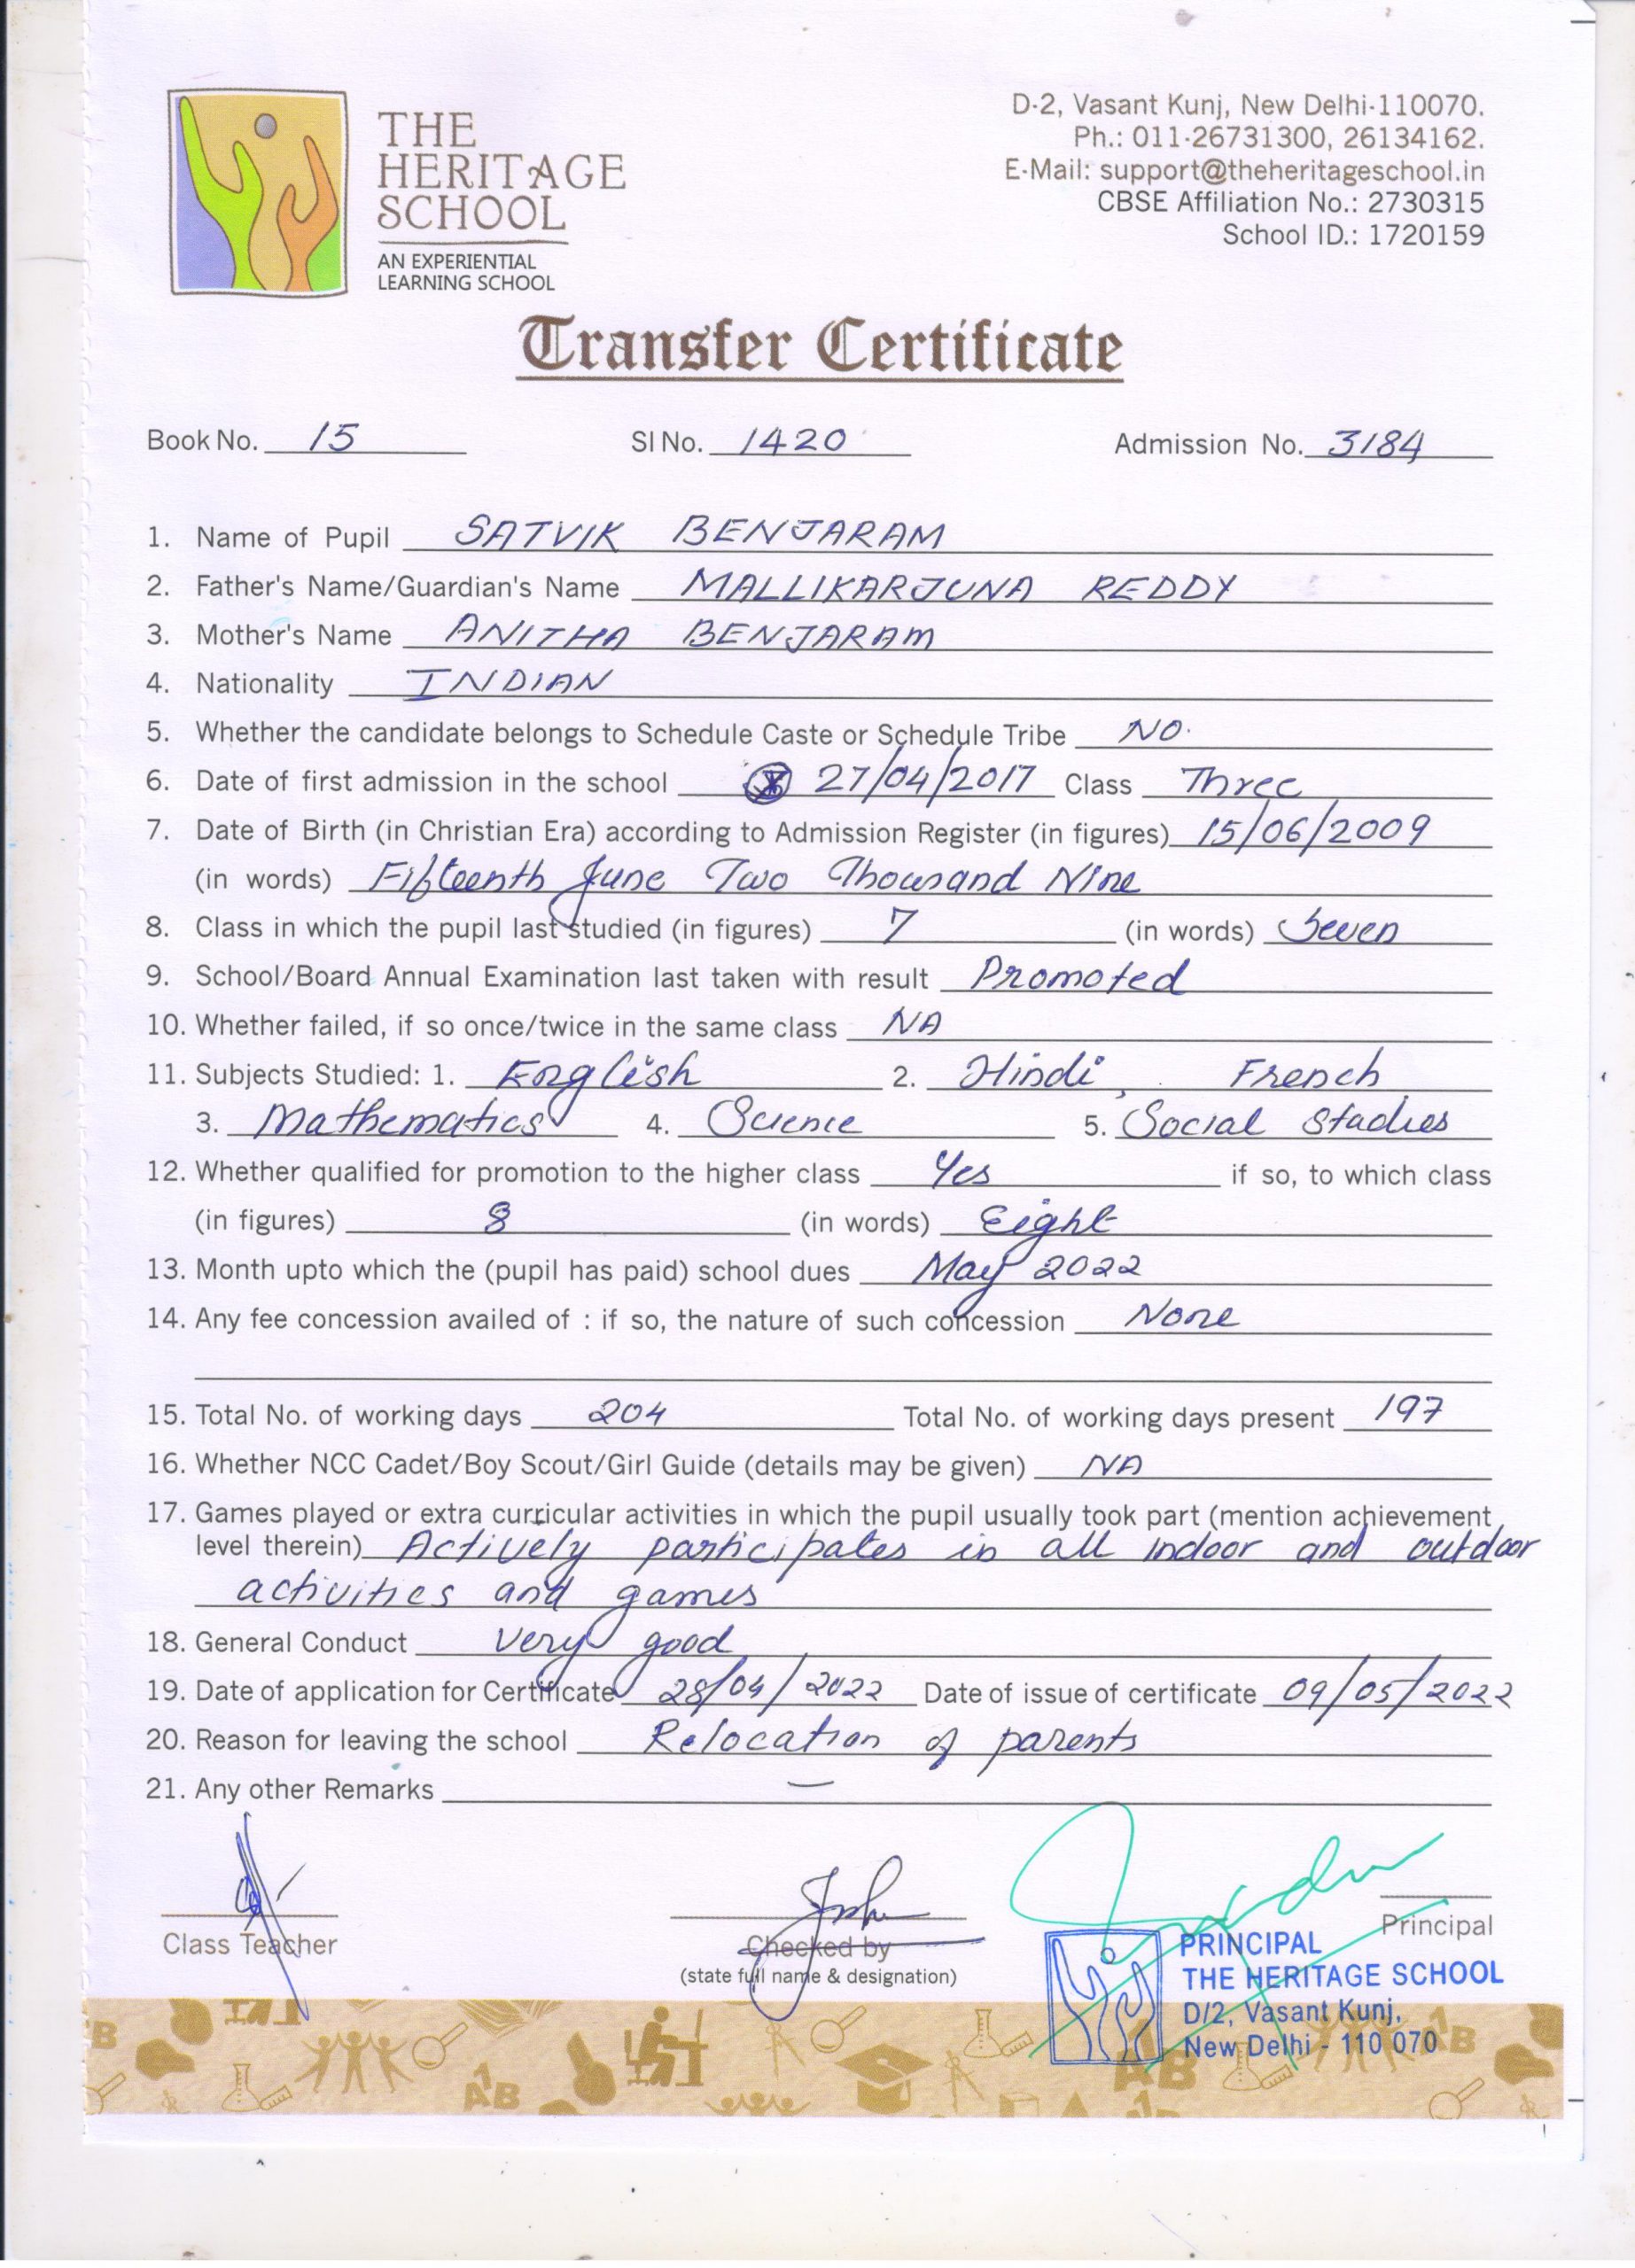 THE
HERITAGE
SCHOOL
AN EXPERIENTIAL
LEARNING SCHOOL
D-2, Vasant Kunj, New Delhi-110070.
Ph.: 011-26731300, 26134162.
E-Mail: support@theheritageschool.in
CBSE Affiliation No.: 2730315
School ID.: 1720159
Transfer Certificate
Book No. 15 Sl No. 1420 Admission No. 3184
1. Name of Pupil SATVIK BENJARAM
2. Father's Name/Guardian's Name MALLIKARJUNA REDDY
3. Mother's Name ANITHA BENJARAM
4. Nationality INDIAN
5. Whether the candidate belongs to Schedule Caste or Schedule Tribe NO.
6. Date of first admission in the school 27/04/2017 Class Three
7. Date of Birth (in Christian Era) according to Admission Register (in figures) 15/06/2009
(in words) Fifteenth June Two Thousand Nine
8. Class in which the pupil last studied (in figures) 7 (in words) Seven
9. School/Board Annual Examination last taken with result Promoted
10. Whether failed, if so once/twice in the same class NA
11. Subjects Studied: 1. English 2. Hindi, French
3. Mathematics 4. Science 5. Social Studies
12. Whether qualified for promotion to the higher class Yes if so, to which class
(in figures) 8 (in words) Eight
13. Month upto which the (pupil has paid) school dues May 2022
14. Any fee concession availed of : if so, the nature of such concession None
15. Total No. of working days 204 Total No. of working days present 197
16. Whether NCC Cadet/Boy Scout/Girl Guide (details may be given) NA
17. Games played or extra curricular activities in which the pupil usually took part (mention achievement
level therein) Actively participates in all indoor and outdoor
activities and games
18. General Conduct Very good
19. Date of application for Certificate 28/04/2022 Date of issue of certificate 09/05/2022
20. Reason for leaving the school Relocation of parents
21. Any other Remarks —
Class Teacher
Checked by
(state full name & designation)
Principal
PRINCIPAL
THE HERITAGE SCHOOL
D/2, Vasant Kunj,
New Delhi - 110 070